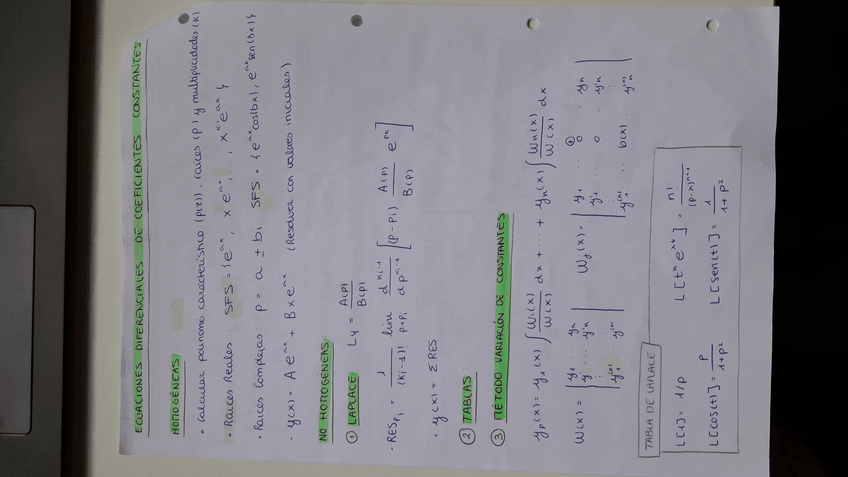 ECUACIONES DIFERENCIALES DE COEFICIENTES CONSTANTES
HOMOGÉNEAS
• Calcular polinomio característico (p(z)), raíces (p) y multiplicidades (k)
• Raíces Reales SFS = {e^ax, x e^ax, ..., x^(k-1) e^ax}
• Raíces Complejas p = a ± bi SFS = {e^ax cos(bx), e^ax sen(bx)}
• y(x) = A e^ax + B x e^ax (Resolver con valores iniciales)
NO HOMOGÉNEAS
① LAPLACE Ly = A(p)/B(p)
• RES_Pi = 1/(Ki-1)! lim p→Pi d^(Ki-1)/dp^(Ki-1) [(p-Pi) A(p)/B(p) e^pt]
• y(x) = Σ RES
② TABLAS
③ MÉTODO VARIACIÓN DE CONSTANTES
yp(x) = y1(x) ∫ W1(x)/W(x) dx + ... + yn(x) ∫ Wn(x)/W(x) dx
W(x) = | y1 ... yn | Wj(x) = | y1 ... 0 ... yn |
| y'1 ... y'n | | y'1 ... 0 ... y'n |
| y1^(n-1) ... yn^(n-1) | | y1^(n-1) ... b(x) ... yn^(n-1) |
TABLA DE LAPLACE
L[1] = 1/p L[t^n e^λt] = n!/(p-λ)^(n+1)
L[cos(t)] = p/(1+p²) L[sen(t)] = 1/(1+p²)